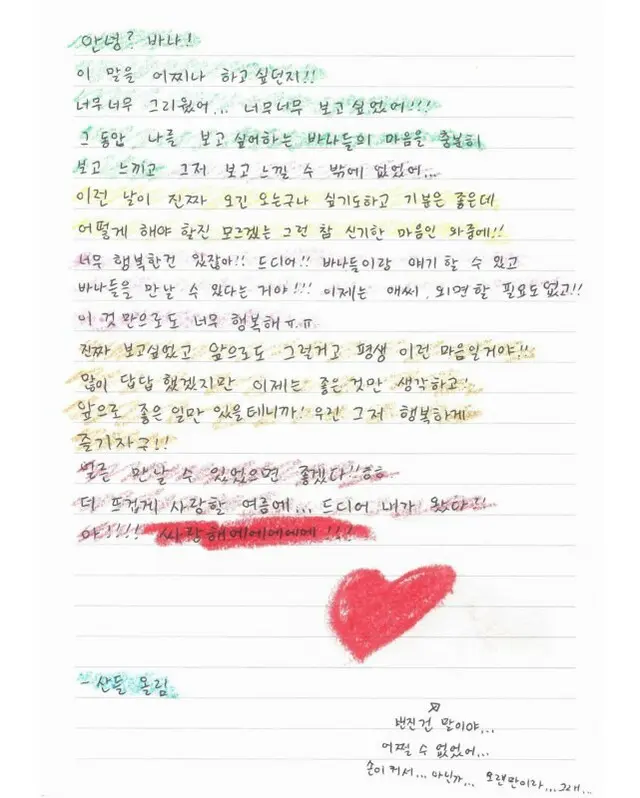 안녕? 바나!
이 말을 어찌나 하고싶던지!!
너무너무 그리웠어... 너무너무 보고싶었어!!!
그 동안 나를 보고싶어하는 바나들의 마음을 충분히
보고 느끼고 그저 보고 느낄 수 밖에 없었어...
이런 날이 진짜 오긴 오는구나 싶기도하고 기분은 좋은데
어떻게 해야 할진 모르겠는 그런 참 신기한 마음인 와중에!!
너무 행복한건 있잖아!! 드디어!! 바나들이랑 얘기 할 수 있고
바나들을 만날 수 있다는 거야!!! 이제는 애써 외면할 필요도없고!!
이 것 만으로도 너무 행복해 ㅠ.ㅠ
진짜 보고싶었고 앞으로도 그럴거고 평생 이런 마음일거야!!
많이 답답했겠지만 이제는 좋은것만 생각하고!
앞으로 좋은 일만 있을테니까! 우린 그저 행복하게
즐기자구!!
얼른 만날 수 있었으면 좋겠다!!ㅎㅎ
더 뜨겁게 사랑할 여름에... 드디어 내가 왔다!!
아!!!! 싸랑해에에에에에!!!
- 산들 올림
번진건 말이야...
어쩔 수 없었어...
손이 커서... 아닌가... 오랜만이라... 그래...